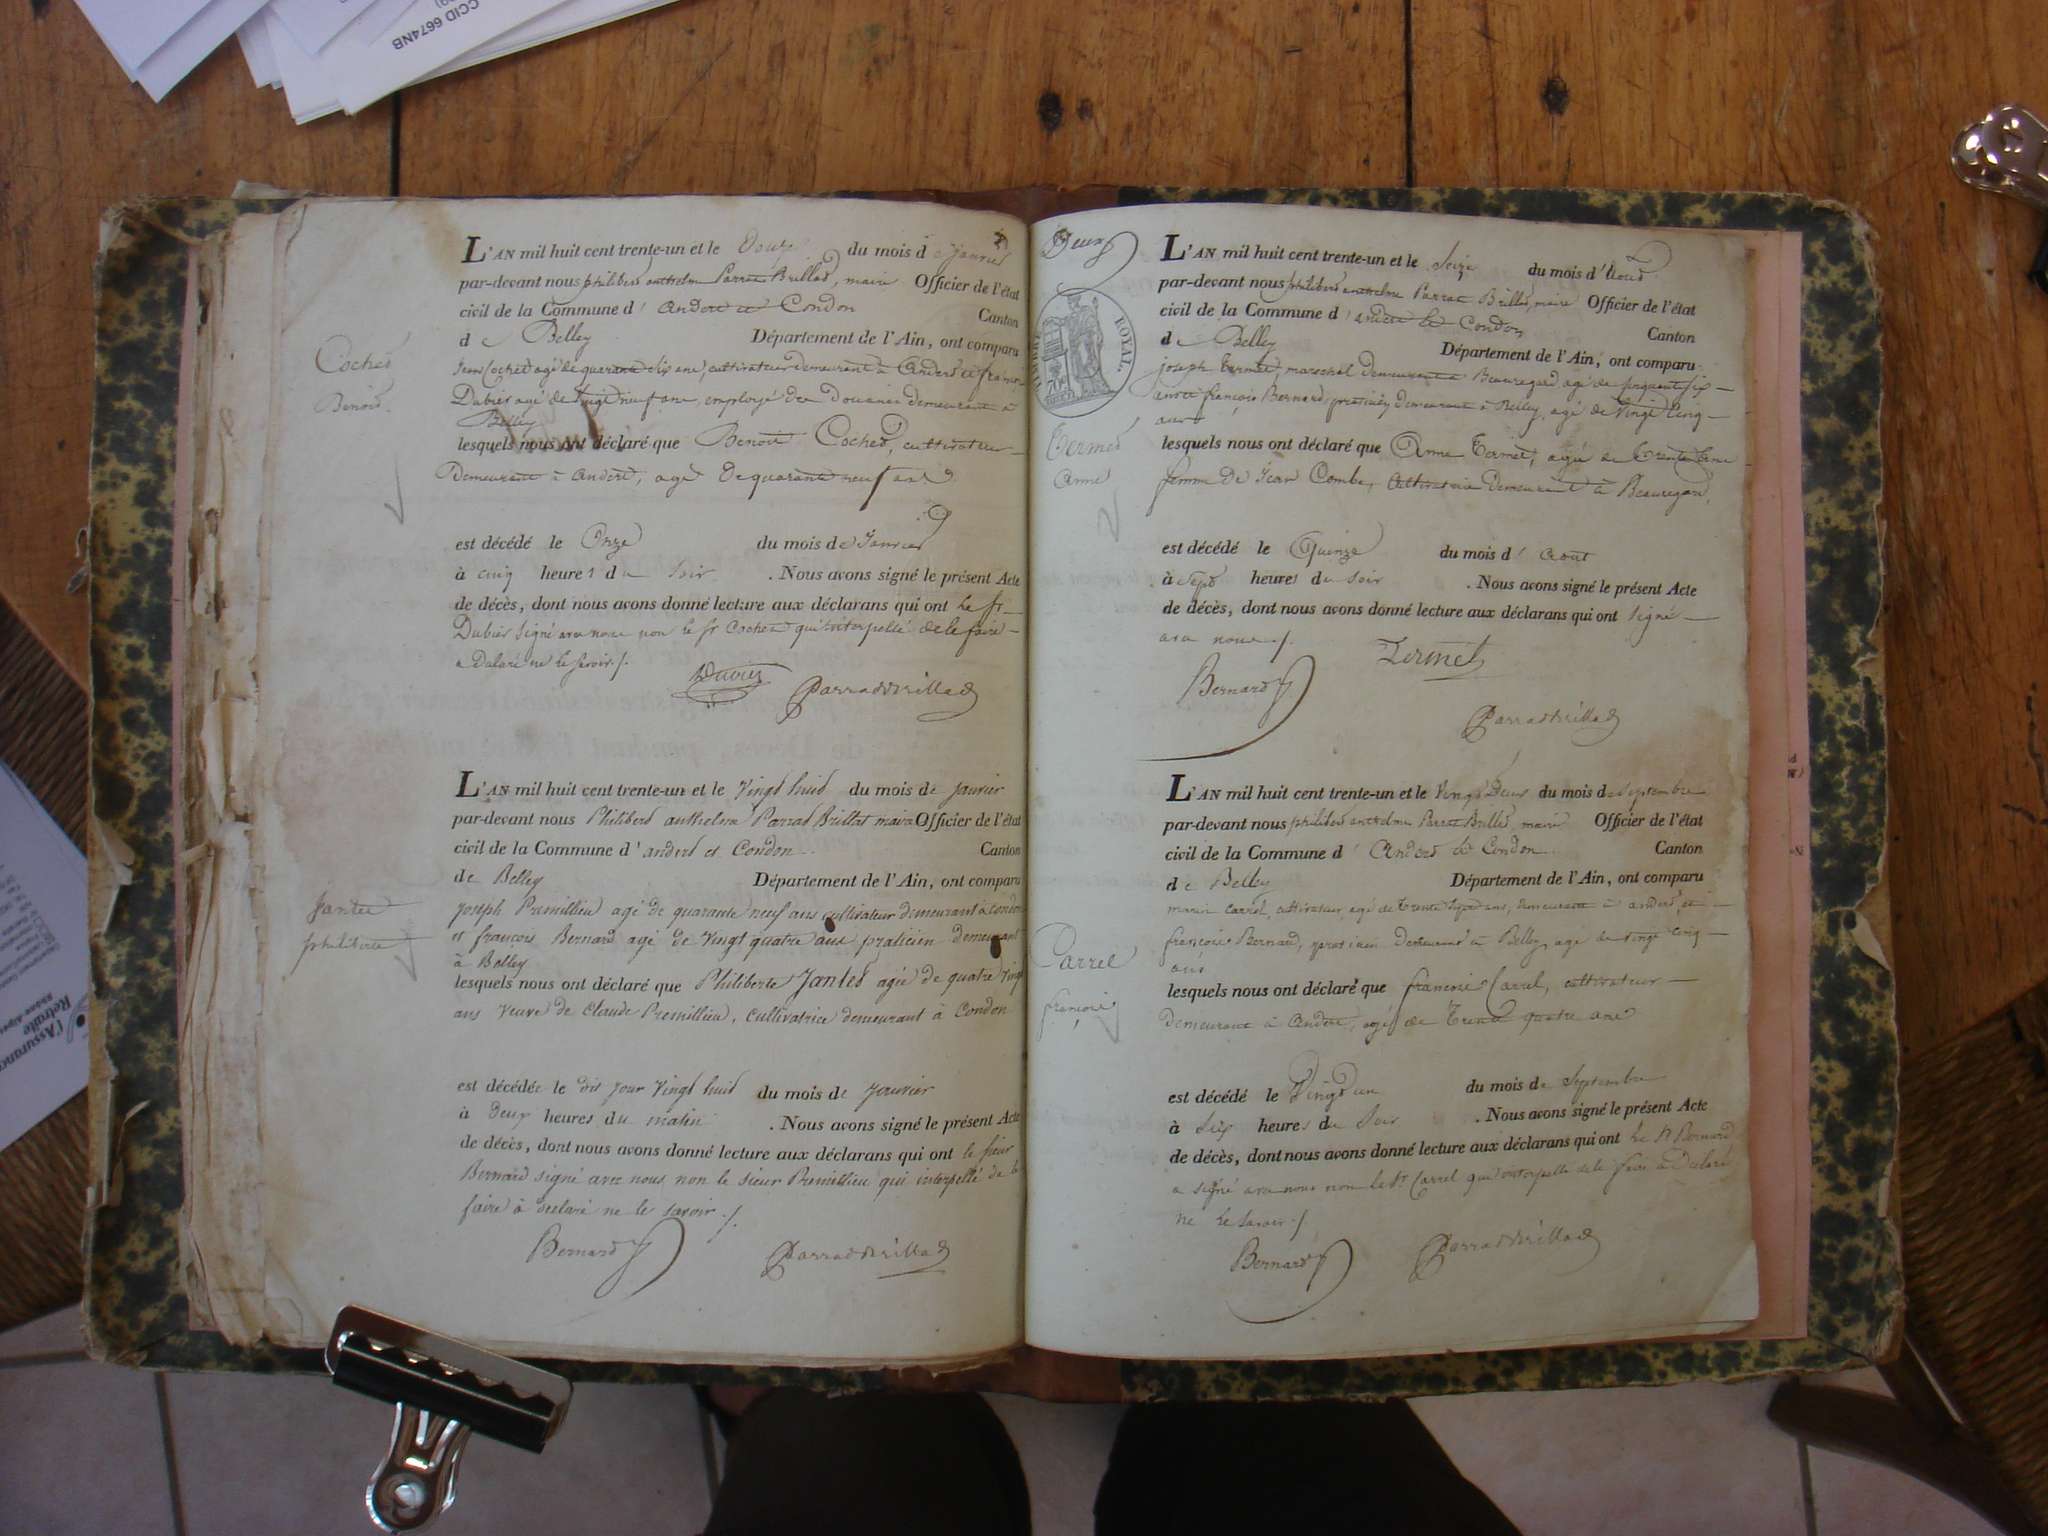 CCID 6674NB
L'AN mil huit cent trente-un et le Douze du mois de Janvier
par-devant nous philiberd anthelm Parrat Brillat, maire Officier de l'état
civil de la Commune d' andert et Condon Canton
de Belley Département de l'Ain, ont comparu
Jean Cochet agé de quarante ans, cultivateur demeurant à Andert et françois
Dubier agé de vingt neuf ans, employé des Douanes demeurant à
Belley
Cochet
Benoit
lesquels nous ont déclaré que Benoit Cochet, cultivateur
Demeurant à andert, agé De quarante neuf ans
est décédé le Onze du mois de Janvier
à cinq heures du soir . Nous avons signé le présent Acte
de décès, dont nous avons donné lecture aux déclarans qui ont le sr
Dubier signé avec nous non le sr Cochet qui interpellé de le faire
a Declaré ne le savoir ./.
Dubier Parrat Brillat
L'AN mil huit cent trente-un et le Vingt huit du mois de janvier
par-devant nous Philiberd anthelme Parrat Brillat maire Officier de l'état
civil de la Commune d' andert et Condon Canton
de Belley Département de l'Ain, ont comparu
Joseph Premillieu agé de quarante neuf ans cultivateur demeurant à condon
et françois Bernard agé de vingt quatre ans praticien demeurant
à Belley
Jantet
philiberte
lesquels nous ont déclaré que Philiberte Jantet agée de quatre vingt
ans veuve de Claude Premillieu, cultivatrice demeurant à Condon
est décédée le dit jour vingt huit du mois de janvier
à deux heures du matin . Nous avons signé le présent Acte
de décès, dont nous avons donné lecture aux déclarans qui ont le sieur
Bernard signé avec nous non le sieur Premillieu qui interpellé de le
faire à declaré ne le savoir ./.
Bernard Parrat Brillat
Deux
ROYAL
L'AN mil huit cent trente-un et le Seize du mois d'Aout
par-devant nous philiberd anthelme Parrat Brillat, maire Officier de l'état
civil de la Commune d' andert et Condon Canton
de Belley Département de l'Ain, ont comparu
joseph Termet, marechal demeurant à Beauregard agé de cinquante six
ans et françois Bernard, praticien demeurant à Belley, agé de vingt cinq
ans
Termet
Anne
lesquels nous ont déclaré que Anne Termet, agée de trente cinq
femme de Jean Combe, Cultivatrice Demeurant à Beauregard,
est décédé le Quinze du mois d' aout
à Sept heures du soir . Nous avons signé le présent Acte
de décès, dont nous avons donné lecture aux déclarans qui ont signé
avec nous ./.
Bernard Termet
Parrat Brillat
L'AN mil huit cent trente-un et le Vingt Deux du mois de Septembre
par-devant nous philiberd anthelme Parrat Brillat, maire Officier de l'état
civil de la Commune d' Andert et Condon Canton
de Belley Département de l'Ain, ont comparu
marin Carrel, cultivateur, agé de trente sept ans, demeurant à andert, et
françois Bernard, praticien demeurant à Belley, agé de vingt cinq
ans
Carrel
françois
lesquels nous ont déclaré que françois Carrel, cultivateur
Demeurant à Andert, agé de Trente quatre ans
est décédé le Vingt un du mois de Septembre
à Six heures du Soir . Nous avons signé le présent Acte
de décès, dont nous avons donné lecture aux déclarans qui ont le Sr Bernard
a signé avec nous non le Sr Carrel qui interpellé de le faire a Declaré
ne le savoir ./.
Bernard Parrat Brillat
l'Assurance
Retraite